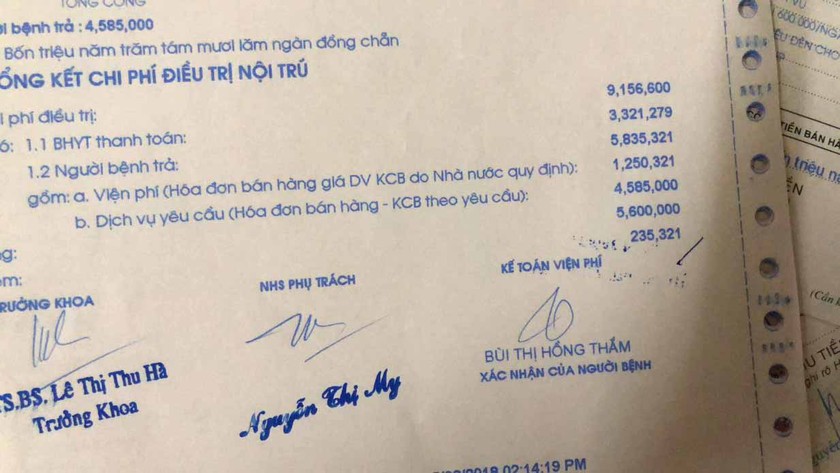 TỔNG CỘNG
bệnh trả : 4,585,000
Bốn triệu năm trăm tám mươi lăm ngàn đồng chẵn
ỔNG KẾT CHI PHÍ ĐIỀU TRỊ NỘI TRÚ
phí điều trị: 9,156,600
ó: 1.1 BHYT thanh toán: 3,321,279
1.2 Người bệnh trả: 5,835,321
gồm: a. Viện phí (Hóa đơn bán hàng giá DV KCB do Nhà nước quy định): 1,250,321
b. Dịch vụ yêu cầu (Hóa đơn bán hàng - KCB theo yêu cầu): 4,585,000
g: 5,600,000
êm: 235,321
RƯỞNG KHOA
NHS PHỤ TRÁCH
KẾ TOÁN VIỆN PHÍ
TS.BS. Lê Thị Thu Hà
Trưởng Khoa
Nguyễn Thị My
BÙI THỊ HỒNG THẮM
XÁC NHẬN CỦA NGƯỜI BỆNH
2018 02:14:19 PM
VỤ
600.000/NGÀ
ĐẾN CHO
TIỀN BÁN HÀ
triệu nă
ỀN
(Cần k
U TIỀ
ghi rõ H